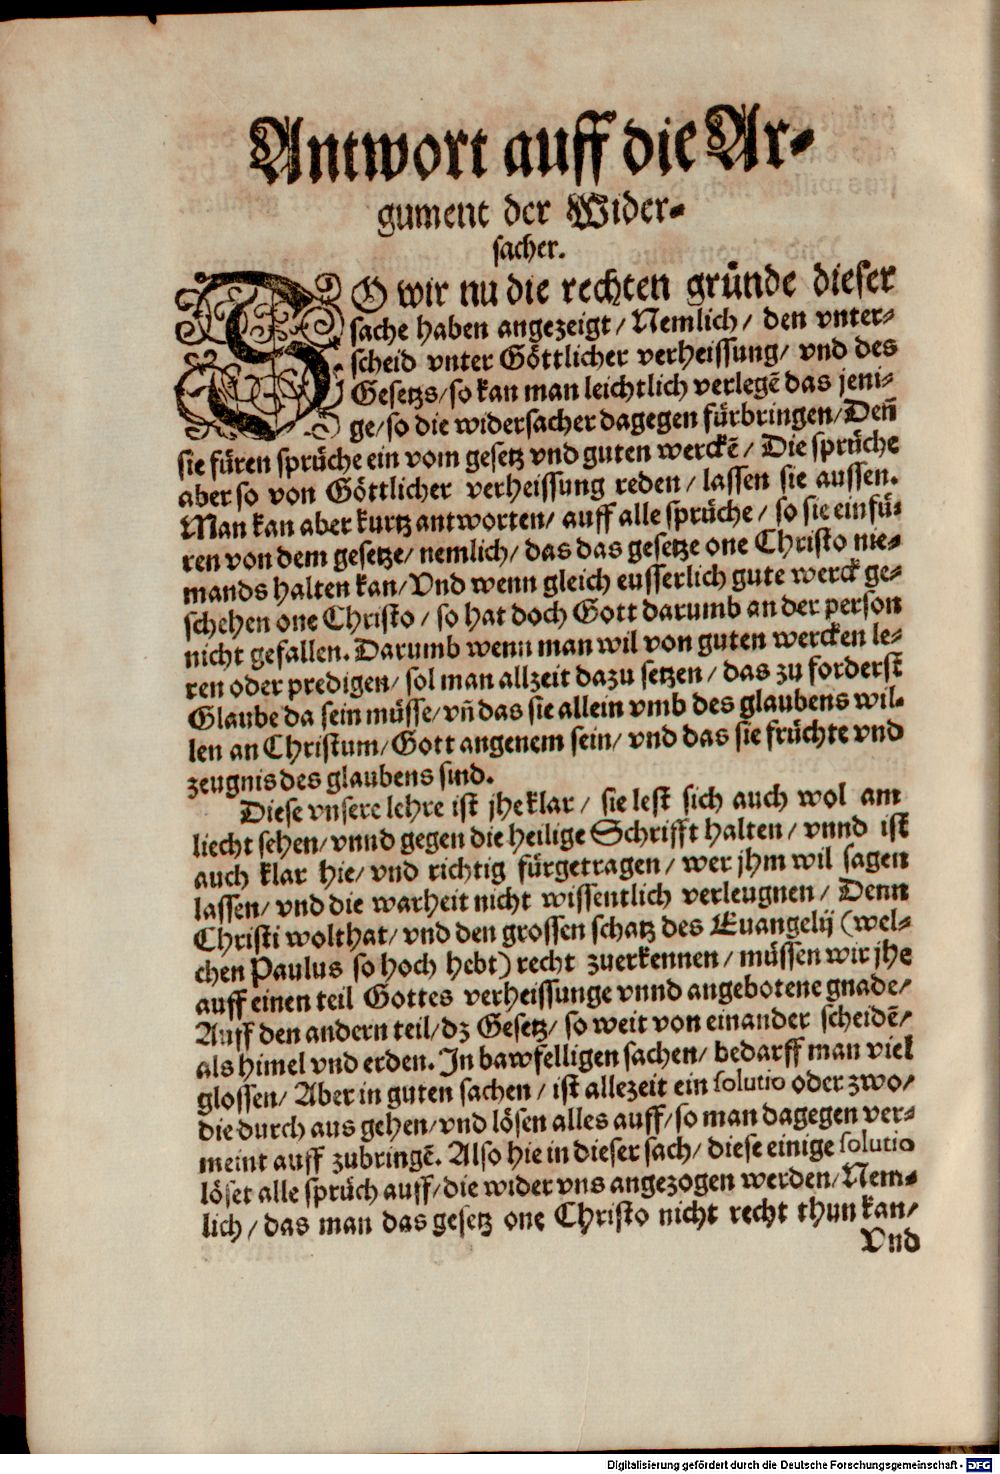 Antwort auff die Ar-
gument der Wider-
sacher.
SO wir nu die rechten gründe dieser
sache haben angezeigt/ Nemlich/ den vnter-
scheid vnter Göttlicher verheissung/ vnd des
Gesetzs/ so kan man leichtlich verlegē das jeni-
ge/ so die widersacher dagegen fürbringen/ Deñ
sie füren sprüche ein vom gesetz vnd guten werckē/ Die sprüche
aber so von Göttlicher verheissung reden/ lassen sie aussen.
Man kan aber kurtz antworten/ auff alle sprüche/ so sie einfü-
ren von dem gesetze/ nemlich/ das das gesetze one Christo nie-
mands halten kan/ Vnd wenn gleich eusserlich gute werck ge-
schehen one Christo/ so hat doch Gott darumb an der person
nicht gefallen. Darumb wenn man wil von guten wercken le-
ren oder predigen/ sol man allzeit dazu setzen/ das zu forderst
Glaube da sein müsse/ vñ das sie allein vmb des glaubens wil-
len an Christum/ Gott angenem sein/ vnd das sie früchte vnd
zeugnis des glaubens sind.
Diese vnsere lehre ist jhe klar/ sie lest sich auch wol am
liecht sehen/ vnnd gegen die heilige Schrifft halten/ vnnd ist
auch klar hie/ vnd richtig fürgetragen/ wer jhm wil sagen
lassen/ vnd die warheit nicht wissentlich verleugnen/ Denn
Christi wolthat/ vnd den grossen schatz des Euangelij (wel-
chen Paulus so hoch hebt) recht zuerkennen/ müssen wir jhe
auff einen teil Gottes verheissunge vnnd angebotene gnade/
Auff den andern teil/ dz Gesetz/ so weit von einander scheidē/
als himel vnd erden. In bawfelligen sachen/ bedarff man viel
glossen/ Aber in guten sachen/ ist allezeit ein solutio oder zwo/
die durch aus gehen/ vnd lösen alles auff/ so man dagegen ver-
meint auff zubringē. Also hie in dieser sach/ diese einige solutio
löset alle sprüch auff/ die wider vns angezogen werden/ Nem-
lich/ das man das gesetz one Christo nicht recht thun kan/
Vnd
Digitalisierung gefördert durch die Deutsche Forschungsgemeinschaft - DFG